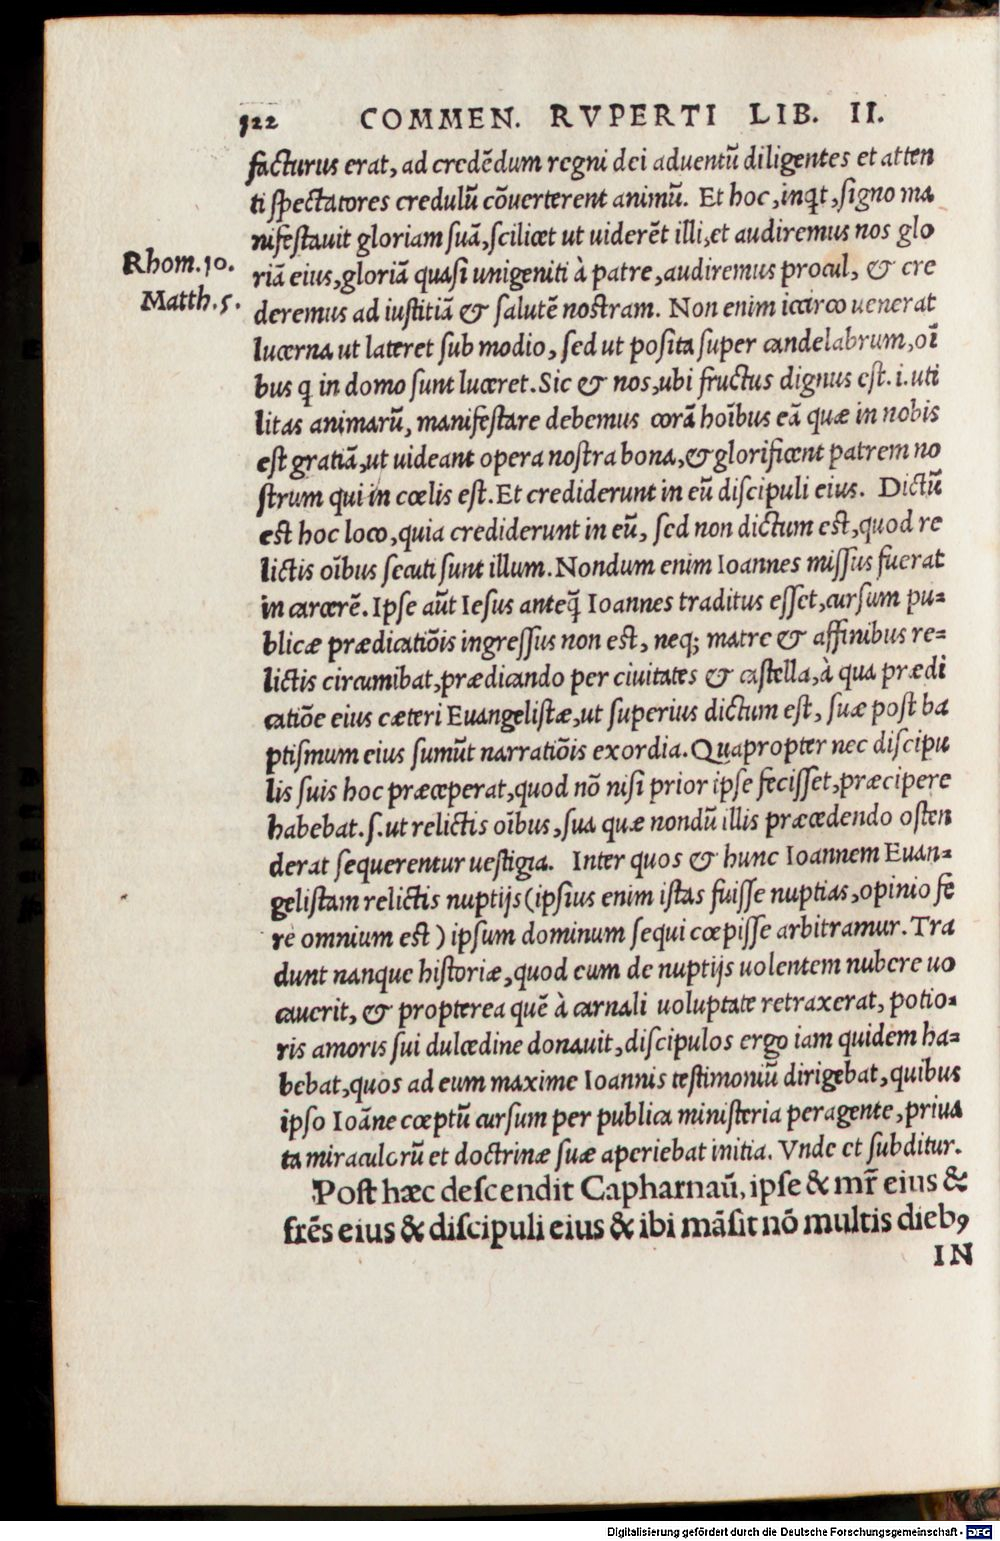 122 COMMEN. RVPERTI LIB. II.
facturus erat, ad credẽdum regni dei aduentũ diligentes et atten
ti ſpectatores credulũ cõuerterent animũ. Et hoc, inq̃t, ſigno ma
nifeſtauit gloriam ſuã, ſcilicet ut uiderẽt illi, et audiremus nos glo
Rhom. 10.
riã eius, gloriã quaſi unigeniti à patre, audiremus procul, & cre
Matth. 5.
deremus ad iuſtitiã & ſalutẽ nostram. Non enim icirco uenerat
lucerna ut lateret ſub modio, ſed ut poſita ſuper candelabrum, oĩ
bus q̃ in domo ſunt luceret. Sic & nos, ubi fructus dignus eſt .i. uti
litas animarũ, manifeſtare debemus corã hoĩbus eã quæ in nobis
eſt gratiã, ut uideant opera noſtra bona, & glorificent patrem no
ſtrum qui in cœlis eſt. Et crediderunt in eũ diſcipuli eius. Dictũ
est hoc loco, quia crediderunt in eũ, ſed non dictum eſt, quod re
lictis oĩbus ſecuti ſunt illum. Nondum enim Ioannes miſſus fuerat
in carcerẽ. Ipſe aũt Ieſus anteq̃ Ioannes traditus eſſet, curſum pu-
blicæ prædicatiõis ingreſſus non eſt, neq; matre & affinibus re-
lictis circumibat, prædicando per ciuitates & caſtella, à qua prædi
catiõe eius cæteri Euangeliſtæ, ut ſuperius dictum eſt, ſuæ poſt ba
ptiſmum eius ſumũt narratiõis exordia. Quapropter nec diſcipu
lis ſuis hoc præceperat, quod nõ niſi prior ipſe feciſſet, præcipere
habebat. ſ. ut relictis oĩbus, ſua quæ nondũ illis præcedendo oſten
derat ſequerentur ueſtigia. Inter quos & hunc Ioannem Euan-
geliſtam relictis nuptijs (ipſius enim iſtas fuiſſe nuptias, opinio fe
re omnium eſt) ipſum dominum ſequi cœpiſſe arbitramur. Tra
dunt nanque hiſtoriæ, quod eum de nuptijs uolentem nubere uo
cauerit, & propterea quẽ à carnali uoluptate retraxerat, potio-
ris amoris ſui dulcedine donauit, diſcipulos ergo iam quidem ha-
bebat, quos ad eum maxime Ioannis teſtimoniũ dirigebat, quibus
ipſo Ioãne cœptũ curſum per publica miniſteria peragente, priua
ta miraculorũ et doctrinæ ſuæ aperiebat initia. Vnde et ſubditur.
Poſt hæc deſcendit Capharnaũ, ipſe & mr̃ eius &
frẽs eius & diſcipuli eius & ibi mãſit nõ multis dieb9
IN
Digitalisierung gefördert durch die Deutsche Forschungsgemeinschaft - DFG